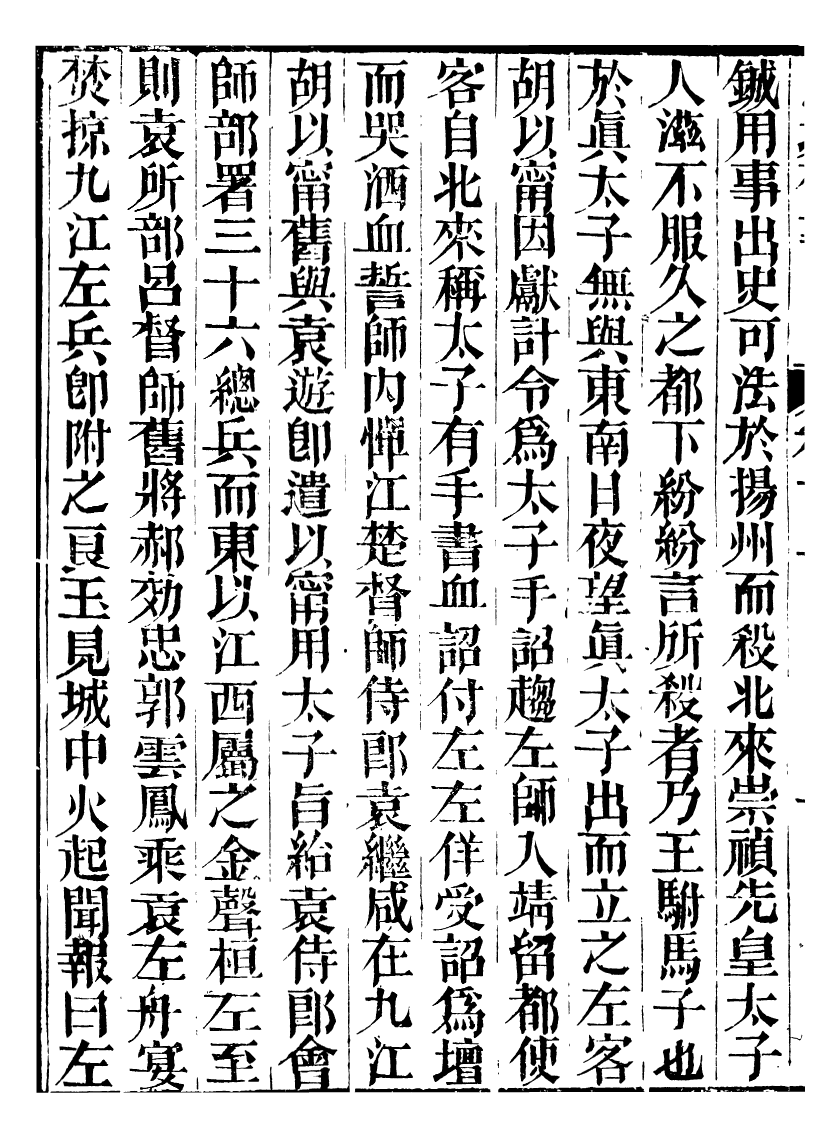 鋮用事出史可法於揚州而殺北來崇禎先皇太子
人滋不服久之都下紛紛言所殺者乃王駙馬子也
於眞太子無與東南日夜望眞太子出而立之左客
胡以甯因獻計令爲太子手詔趨左師入靖留都使
客自北來稱太子有手書血詔付左左佯受詔爲壇
而哭洒血誓師內憚江楚督師侍郎袁繼咸在九江
胡以甯舊與袁遊卽遣以甯用太子旨紿袁侍郎會
師部署三十六總兵而東以江西屬之金聲桓左至
則袁所部呂督師舊將郝効忠郭雲鳳乘袁左舟宴
焚掠九江左兵卽附之良玉見城中火起聞報曰左